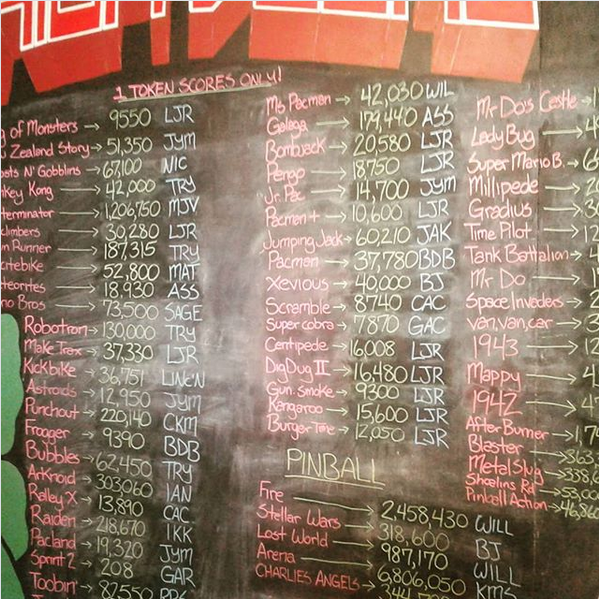 1 TOKEN SCORES ONLY!
of Monsters → 9550 LJR
Zealand Story → 51,350 JYM
N' Gobblins → 67,100 NIC
Kong → 42,000 TRY
→ 1,206,750 MJV
→ 30,280 LJR
Runner → 187,315 TRY
→ 52,800 MAT
→ 18,930 ASS
Bros → 73,500 SAGE
Robotron → 130,000 TRY
Make Trax → 37,330 LJR
Kickbike → 36,751 LINC'N
Astroids → 12,950 JYM
Punchout → 220,140 CKM
Frogger → 9390 BDB
Bubbles → 62,450 TRY
Arknoid → 303,060 IAN
Ralley X → 13,890 CAC
Raiden → 218,670 IKK
Pacland → 19,320 JYM
Sprint 2 → 208 GAR
Toobin' → 82,550
Ms Pacman → 42,030 WIL
Galaga → 179,440 ASS
Bombjack → 20,580 LJR
Pengo → 18750 LJR
Jr. Pac → 14,700 JYM
Pacman + → 10,600 LJR
Jumping Jack → 60,210 JAK
Pacman → 37,780 BDB
Xevious → 40,000 BJ
Scramble → 8740 CAC
Super cobra → 7870 GAC
Centipede → 16,008 LJR
Dig Dug II → 16480 LJR
Gun. Smoke → 9300 LJR
Kangaroo → 15,600 LJR
Burger Time → 12,050 LJR
PINBALL
Fire → 2,458,430 WILL
Stellar Wars → 318,600 BJ
Lost World → 987,170 WILL
Arena → 6,806,050 KMS
CHARLIES ANGELS →
Mr Do's Castle →
Lady Bug →
Super Mario B. →
Millipede →
Gradius →
Time Pilot →
Tank Battalion →
Mr Do →
Space Invaders →
van, van, car →
1943 →
Mappy →
1942 →
After Burner →
Blaster →
Metal Slug →
Shaolins Rd →
Pinball Action →